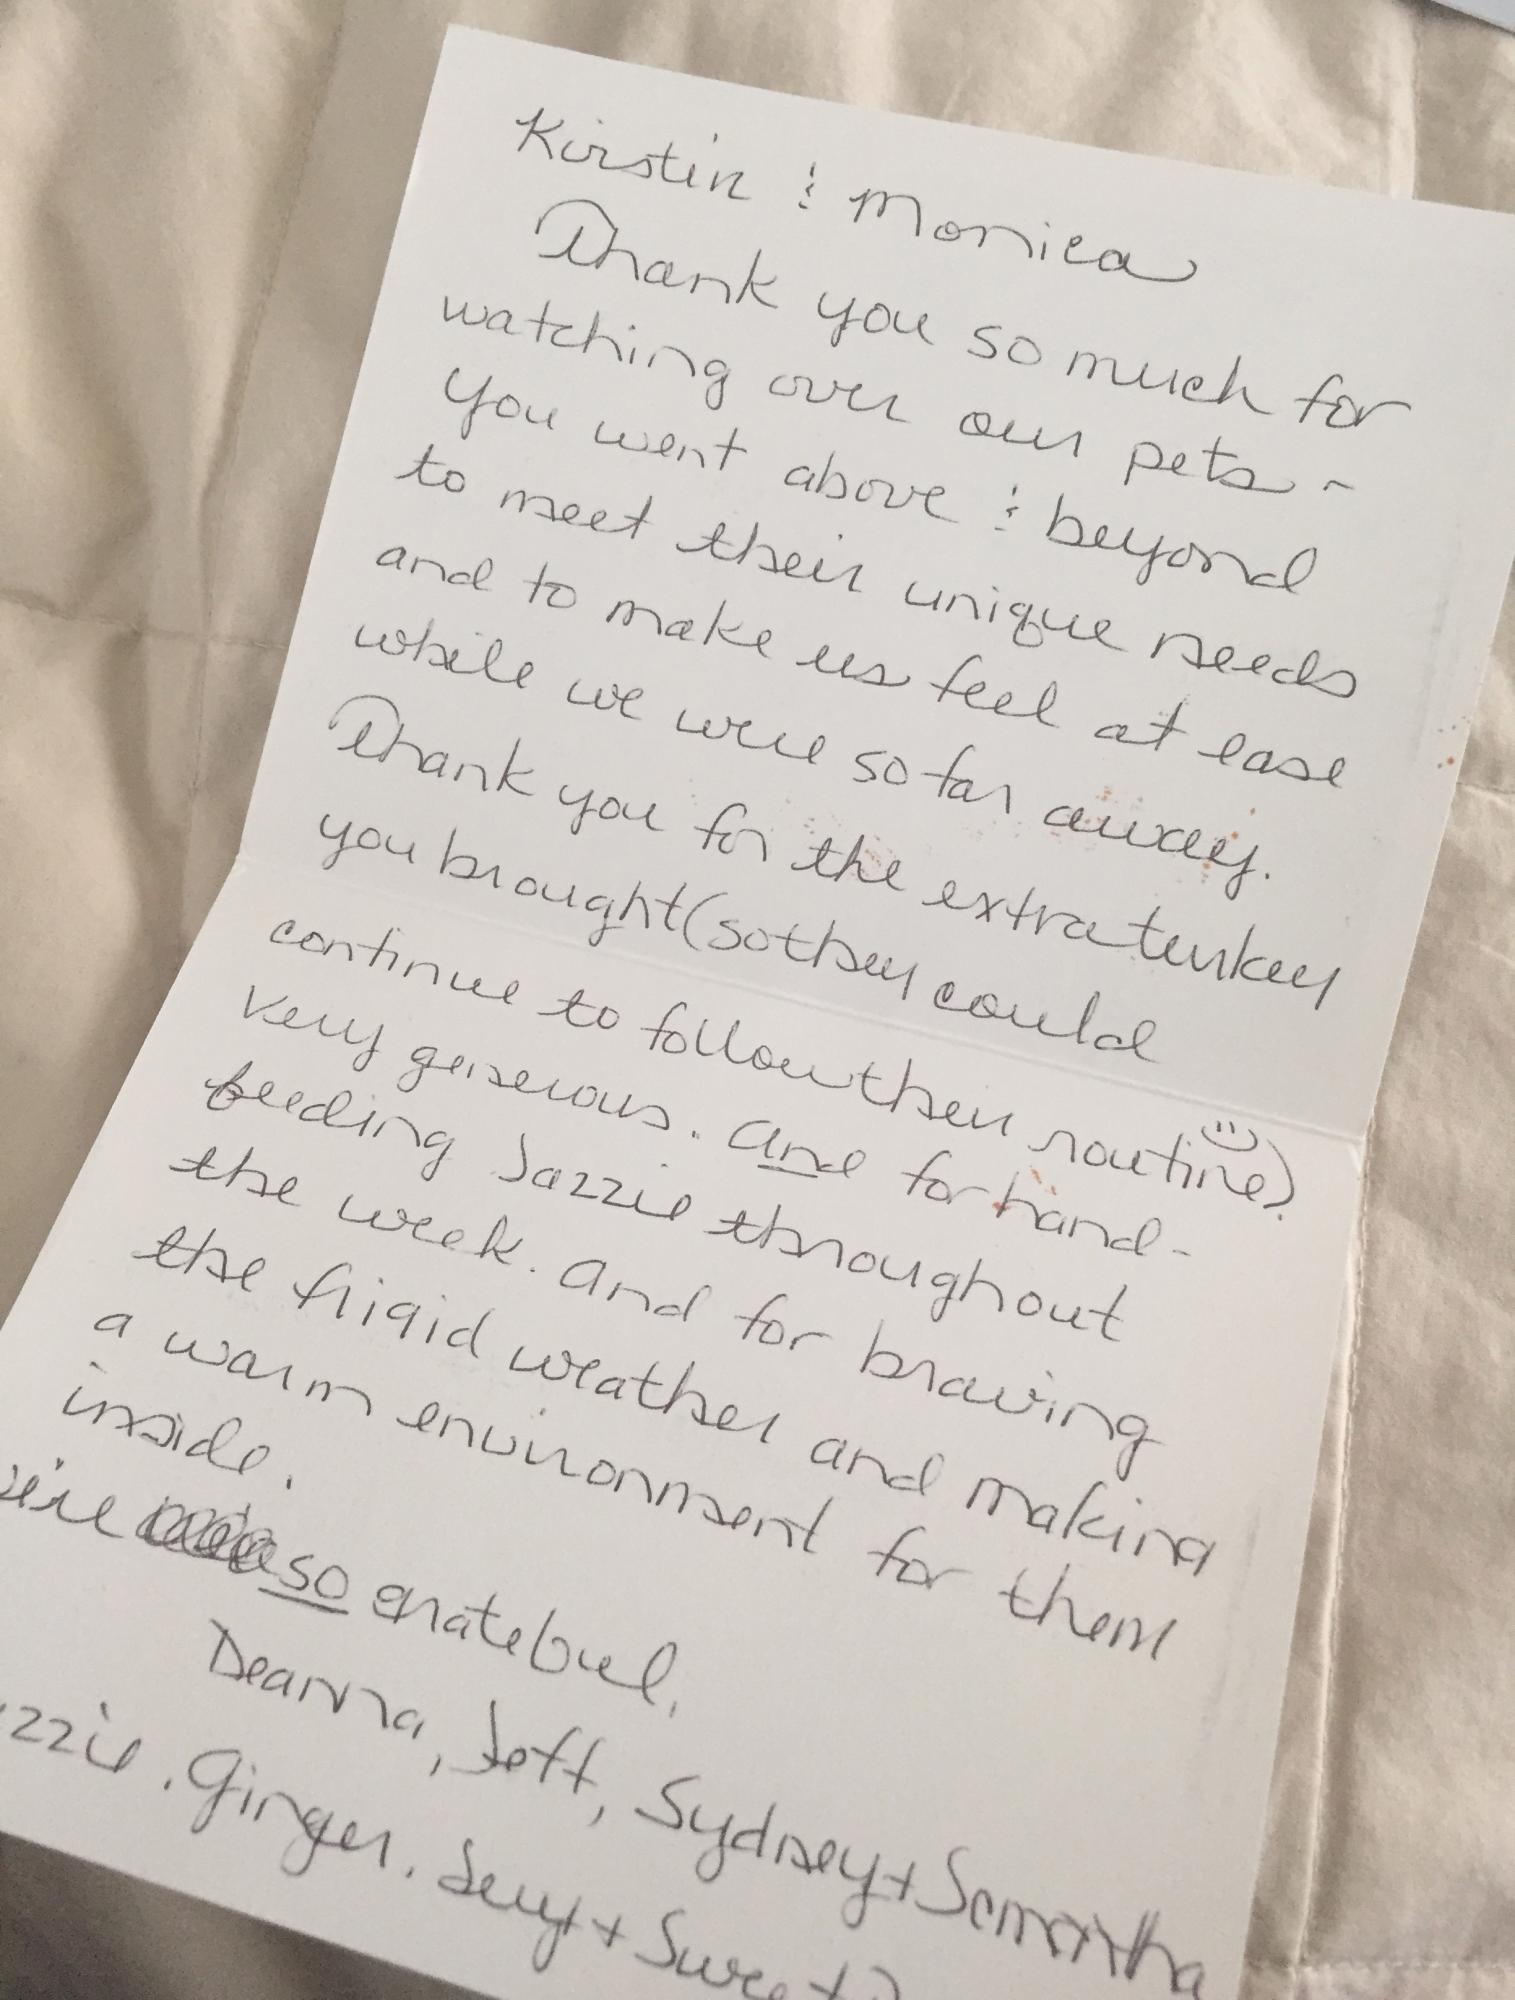 Kirstin & Monica
Thank you so much for
watching over our pets -
You went above & beyond
to meet their unique needs
and to make us feel at ease
while we were so far away.
Thank you for the extra turkey
you brought (so they could
continue to follow their routine).
Very generous. And for hand-
feeding Jazzie throughout
the week. And for braving
the frigid weather and making
a warm environment for them
inside.
so grateful.
Deanna, Jeff, Sydney + Samantha
Ginger.